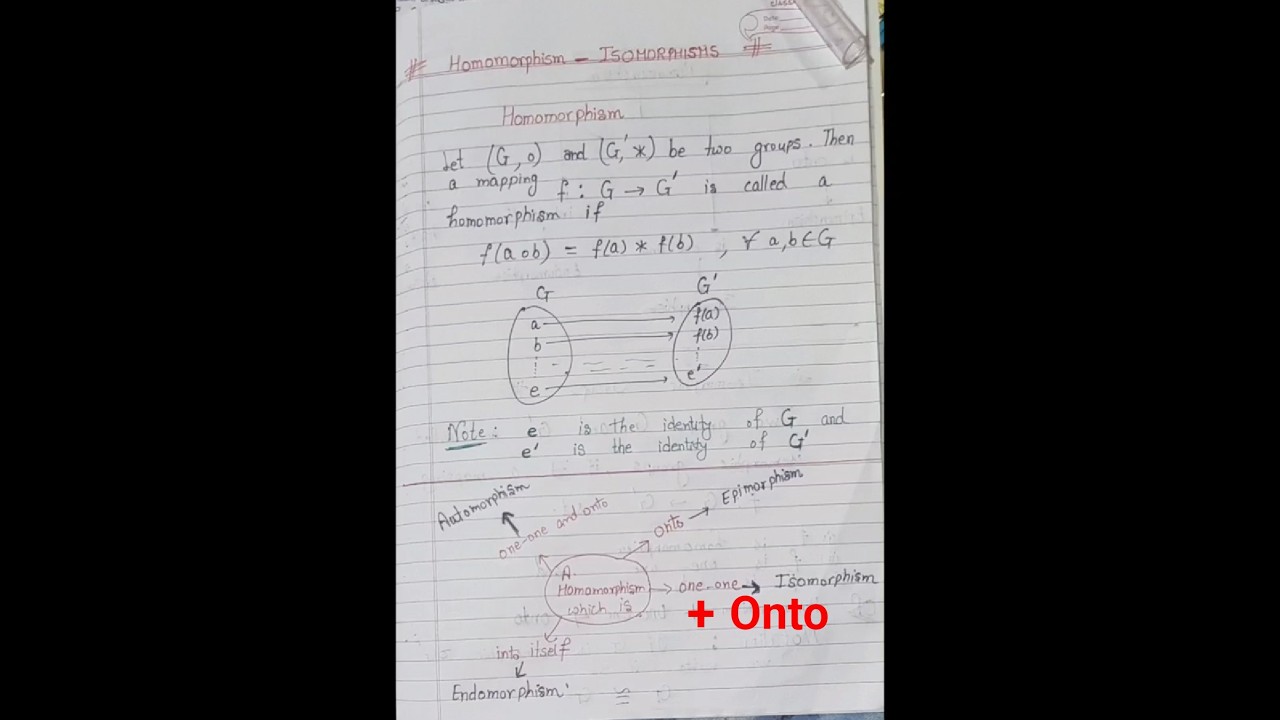 # Homomorphism – ISOMORPHISMS #
Date
Page
Homomorphism
Let (G, o) and (G', *) be two groups. Then
a mapping f : G → G' is called a
homomorphism if
f(a o b) = f(a) * f(b) , ∀ a,b ∈ G
G G'
a f(a)
b f(b)
e e'
Note: e is the identity of G and
e' is the identity of G'
Automorphism
one-one and onto
Onto → Epimorphism
A
Homomorphism
which is
→ one-one → Isomorphism
+ Onto
into itself
Endomorphism